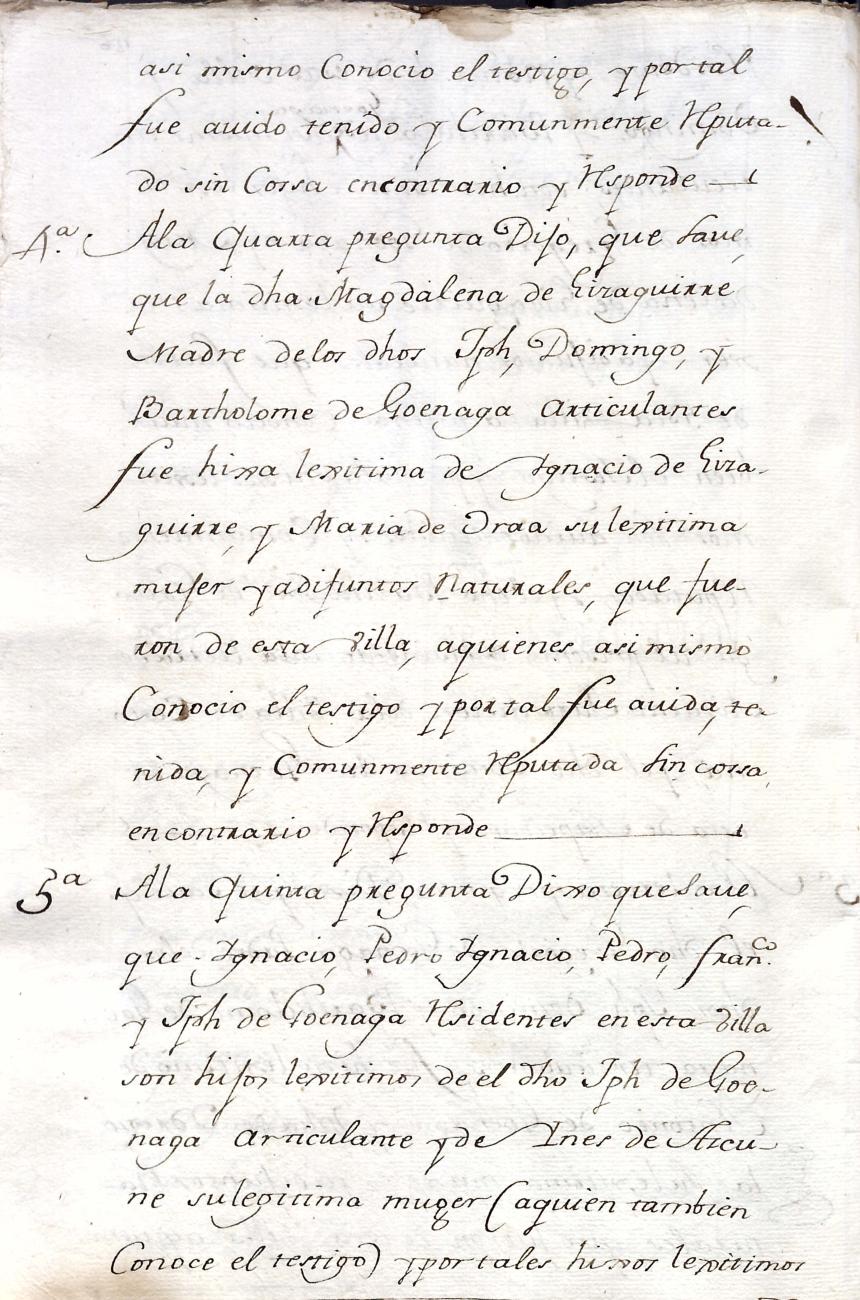 asi mismo Conocio el testigo, y por tal
fue auido tenido y Comunmente Reputa-
do sin Cossa encontrario y Responde
4.ª Ala Quarta pregunta Dijo, que save,
que la dha Magdalena de Eizaguirre
Madre delos dhos Jph, Domingo, y
Bartholome de Goenaga articulantes
fue hixa lexitima de Ignacio de Eiza-
guirre, y Maria de Oraa su lexitima
mujer ya difuntos Naturales, que fue-
ron de esta villa, aquienes asimismo
Conocio el testigo y por tal fue auida, te-
nida, y Comunmente Reputada sin cossa,
encontrario y Responde
5ª Ala Quinta pregunta Dixo que save,
que Ignacio, Pedro Ignacio, Pedro, fran.co
y Jph de Goenaga Residentes en esta villa
son hijos lexitimos de el dho Jph de Goe-
naga articulante y de Ines de Azcu-
ne su legitima muger (aquien tambien
Conoce el testigo) y por tales hixos lexitimos